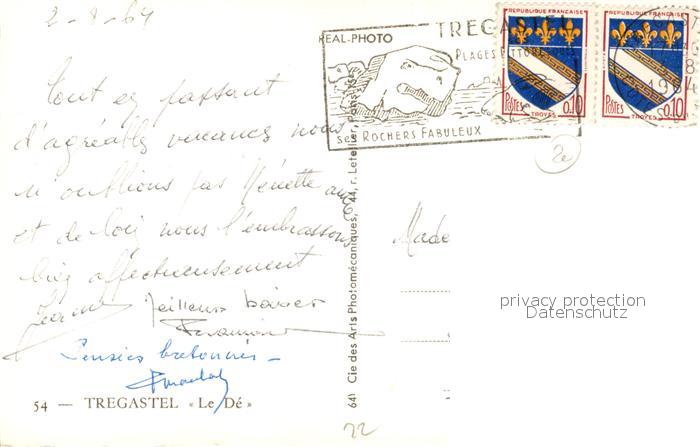 2-8-64
Tout en passant
d'agréables vacances nous
n'oublions pas Nénette
et de loin nous l'embrassons
bien affectueusement
Meilleurs baisers
Pensées bretonnes -
54 — TREGASTEL « Le Dé »
REAL-PHOTO
641 Cie des Arts Photomécaniques, 44, r. Letellier, Paris
TREGASTEL
PLAGES
SES ROCHERS FABULEUX
REPUBLIQUE FRANÇAISE
POSTES 0,10
TROYES
REPUBLIQUE FRANÇAISE
POSTES 0,10
TROYES
1964
2e
Made
privacy protection
Datenschutz
22